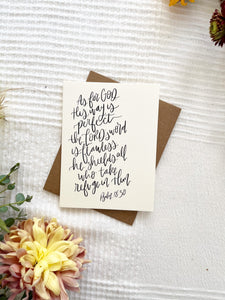 As for GOD,
His way is
perfect
the LORD'S word
is flawless
he shields all
who take
refuge in Him
Psalm 18:30